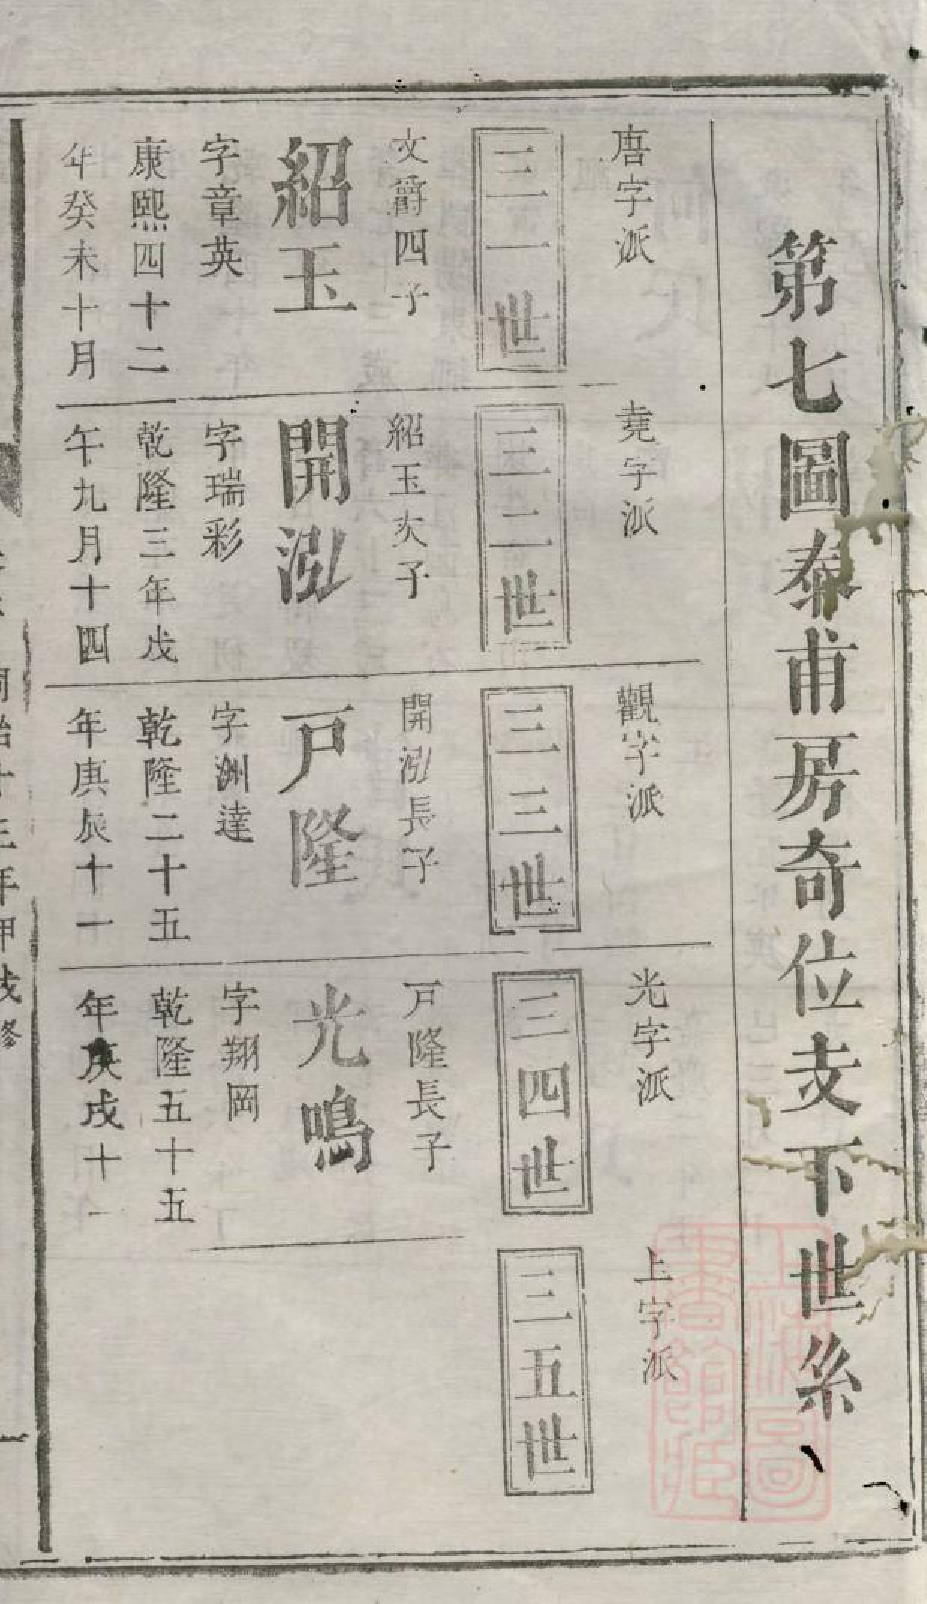 第七圖泰甫房奇位支下世系
唐字派
三一世
文爵四子
紹玉
字章英
康熙四十二
年癸未十月
堯字派
三二世
紹玉次子
開泓
字瑞彩
乾隆三年戊
午九月十四
觀字派
三三世
開泓長子
戸隆
字洲達
乾隆二十五
年庚辰十一
光字派
三四世
戸隆長子
光鳴
字翔岡
乾隆五十五
年庚戌十一
上字派
三五世
同治十三年甲戌修